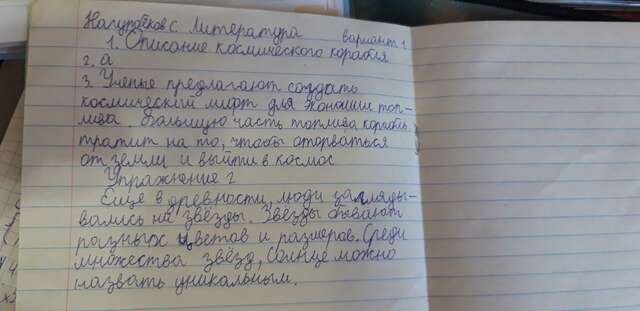 Нагуробеков с. Литература вариант 1
1. Описание космического корабля
2. а
3. Ученые предлагают создать
космический лифт для экономии топ-
лива. большую часть топлива корабль
тратит на то, чтобы оторваться
от земли и выйти в космос
Упражнение 2
Еще в древности, люди загляды-
вались на звёзды. Звёзды бывают
разных цветов и размеров. Среди
множества звёзд, солнце можно
назвать уникальным.